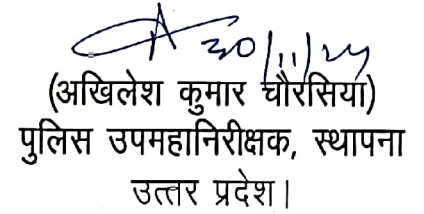 30/11/24
(अखिलेश कुमार चौरसिया)
पुलिस उपमहानिरीक्षक, स्थापना
उत्तर प्रदेश।